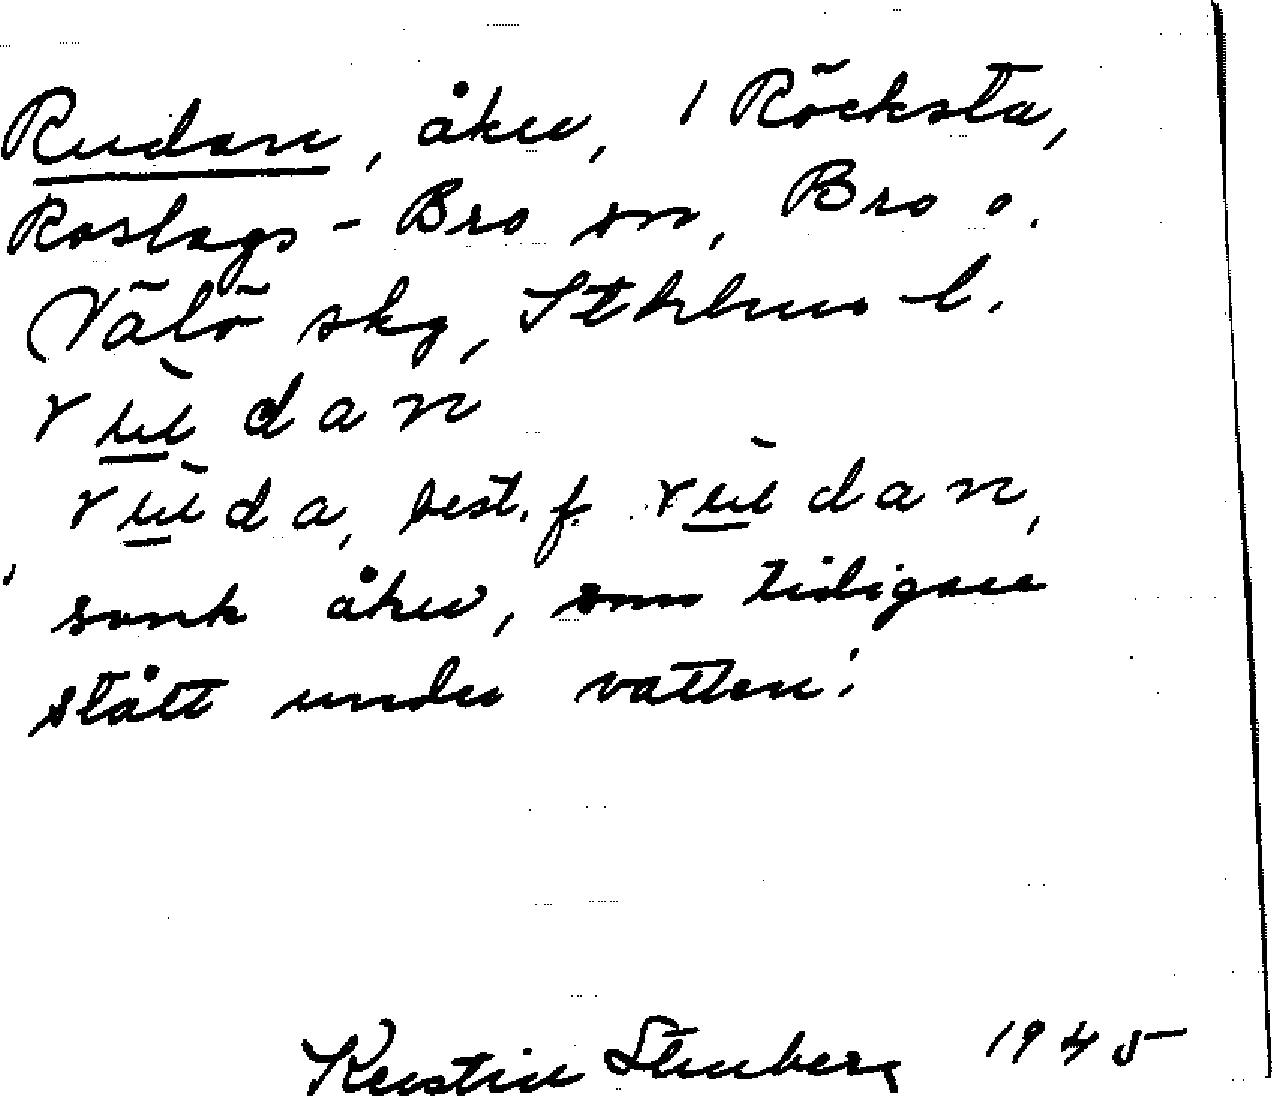 Rudan, åker, / Röcksta,
Roslags-Bro sn, Bro o.
Vätö skg, Sthlms l.
rùdan
rùda, best.f. rùdan,
'sank åker, som tidigare
stått under vatten.'
Kerstin Stenberg 1945